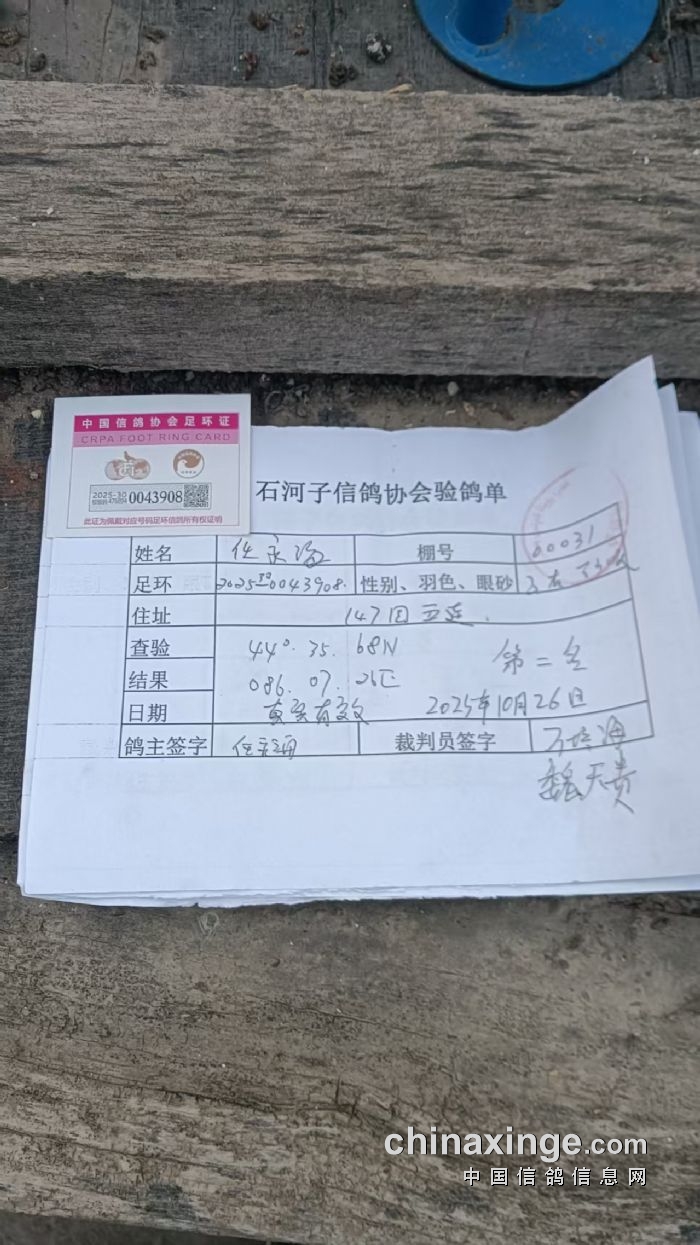 中国信鸽协会足环证
CRPA FOOT RING CARD
2025-30
0043908
此证为佩戴对应号码足环信鸽所有权证明
石河子信鸽协会验鸽单
姓名 任永 棚号 00031
足环 2025-30 0043908 性别、羽色、眼砂
住址 147团
查验 44°.35.68N 第二名
结果 086.07.26E
日期 真实有效 2025年10月26日
鸽主签字 任永 裁判员签字
魏天贵
chinaxinge.com
中国信鸽信息网